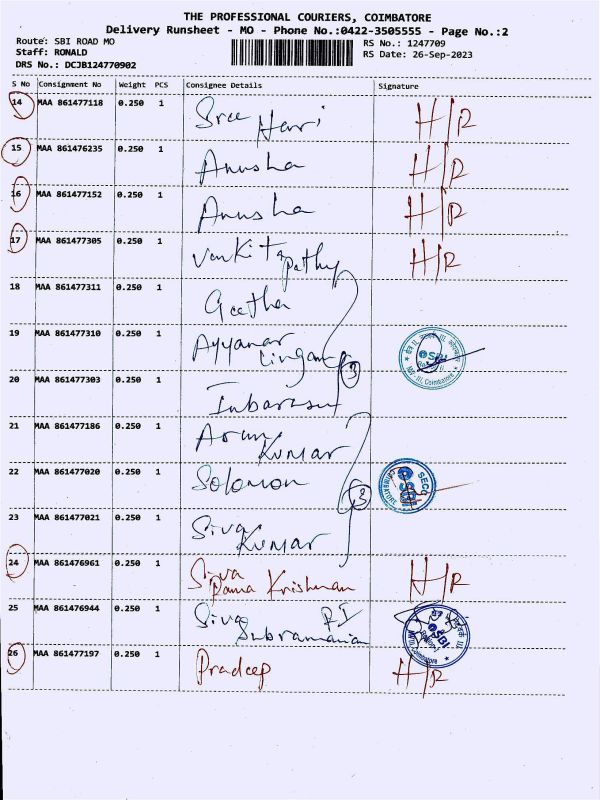 THE PROFESSIONAL COURIERS, COIMBATORE
Delivery Runsheet - MO - Phone No.:0422-3505555 - Page No.:2
Route: SBI ROAD MO RS No.: 1247709
Staff: RONALD RS Date: 26-Sep-2023
DRS No.: DCJB124770902
S No Consignment No Weight PCS Consignee Details Signature
14 MAA 861477118 0.250 1 Sree Hari H/R
15 MAA 861476235 0.250 1 Anusha H/R
16 MAA 861477152 0.250 1 Anusha H/R
17 MAA 861477305 0.250 1 Venkitapathy H/R
18 MAA 861477311 0.250 1 Geetha
19 MAA 861477310 0.250 1 Ayyanar Lingam
3
SBI
Coimbatore
20 MAA 861477303 0.250 1 Inbarasu
21 MAA 861477186 0.250 1 Arun Kumar
22 MAA 861477020 0.250 1 Solomon
3
SBI
COIMBATORE
23 MAA 861477021 0.250 1 Siva Kumar
24 MAA 861476961 0.250 1 Siva Rama Krishnan H/R
25 MAA 861476944 0.250 1 Siva Subramanian
SBI
Coimbatore
26 MAA 861477197 0.250 1 Pradeep H/R